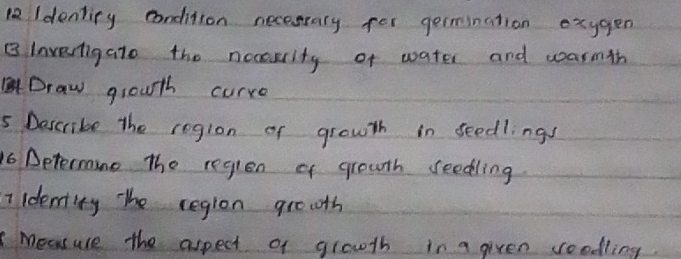 12 Identify condition necessary for germination oxygen
13 Investigate the necessity of water and warmth
14 Draw growth curve
5 Describe the region of growth in seedlings
16 Determine the region of growth seedling
7 Identify the region growth
Measure the aspect of growth in a given seedling.